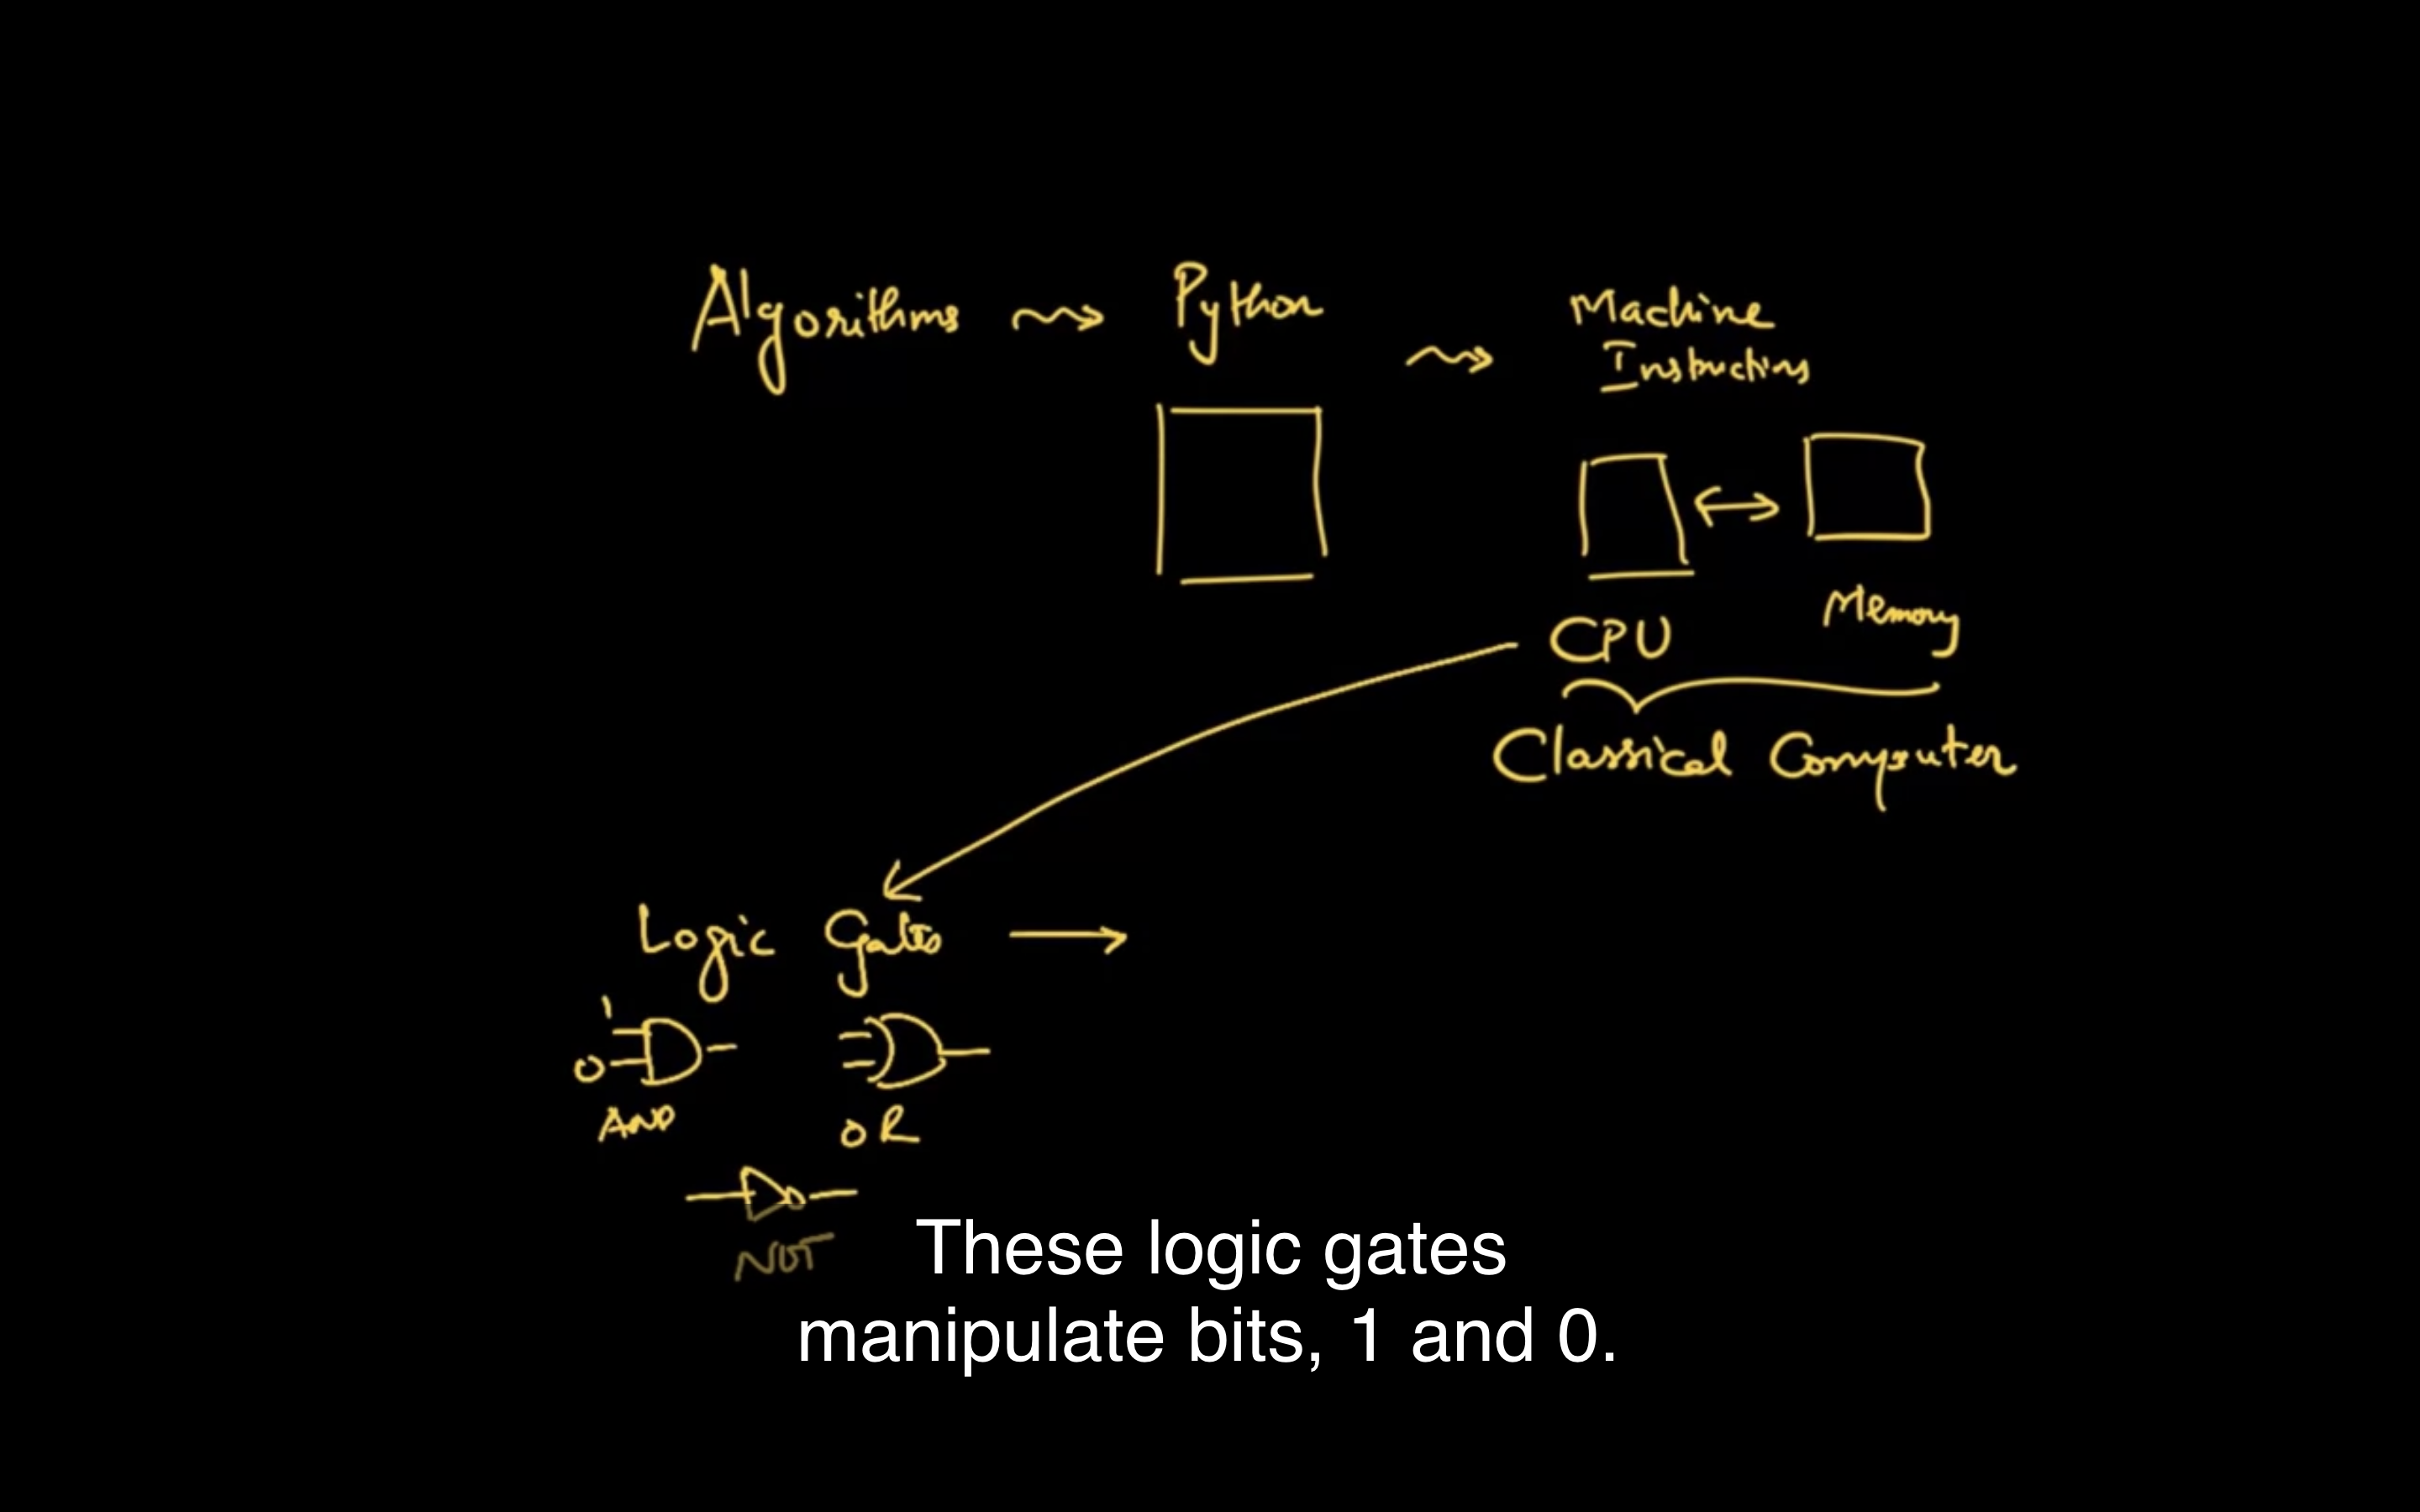 Algorithms
Python
Machine
Instructions
CPU
Memory
Classical Computer
Logic Gates
1
0
AND
OR
NOT
These logic gates
manipulate bits, 1 and 0.